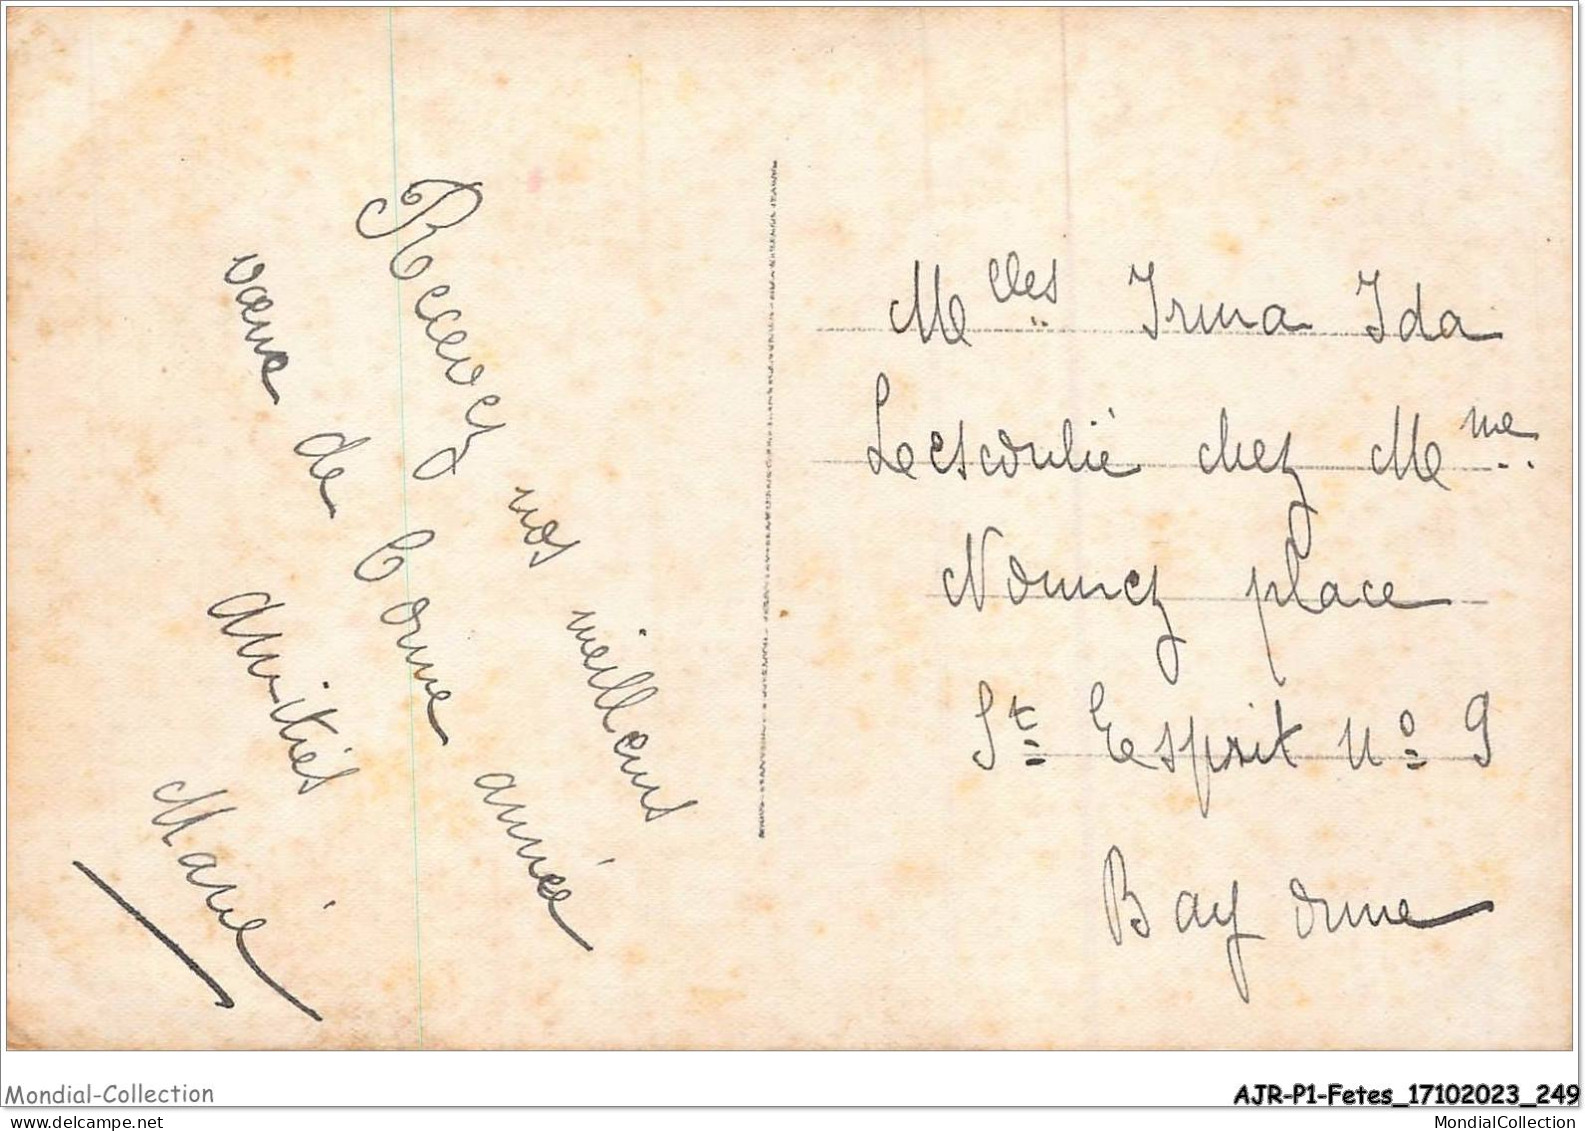 Recevez nos meilleurs
vœux de bonne année
amitiés
Marie
Melles Irma Ida
Lescoulié chez Mme
Nounez place
St Esprit no 9
Bayonne
Mondial-Collection
AJR-P1-Fetes_17102023_249
www.mondial-collection.com
MondialCollection